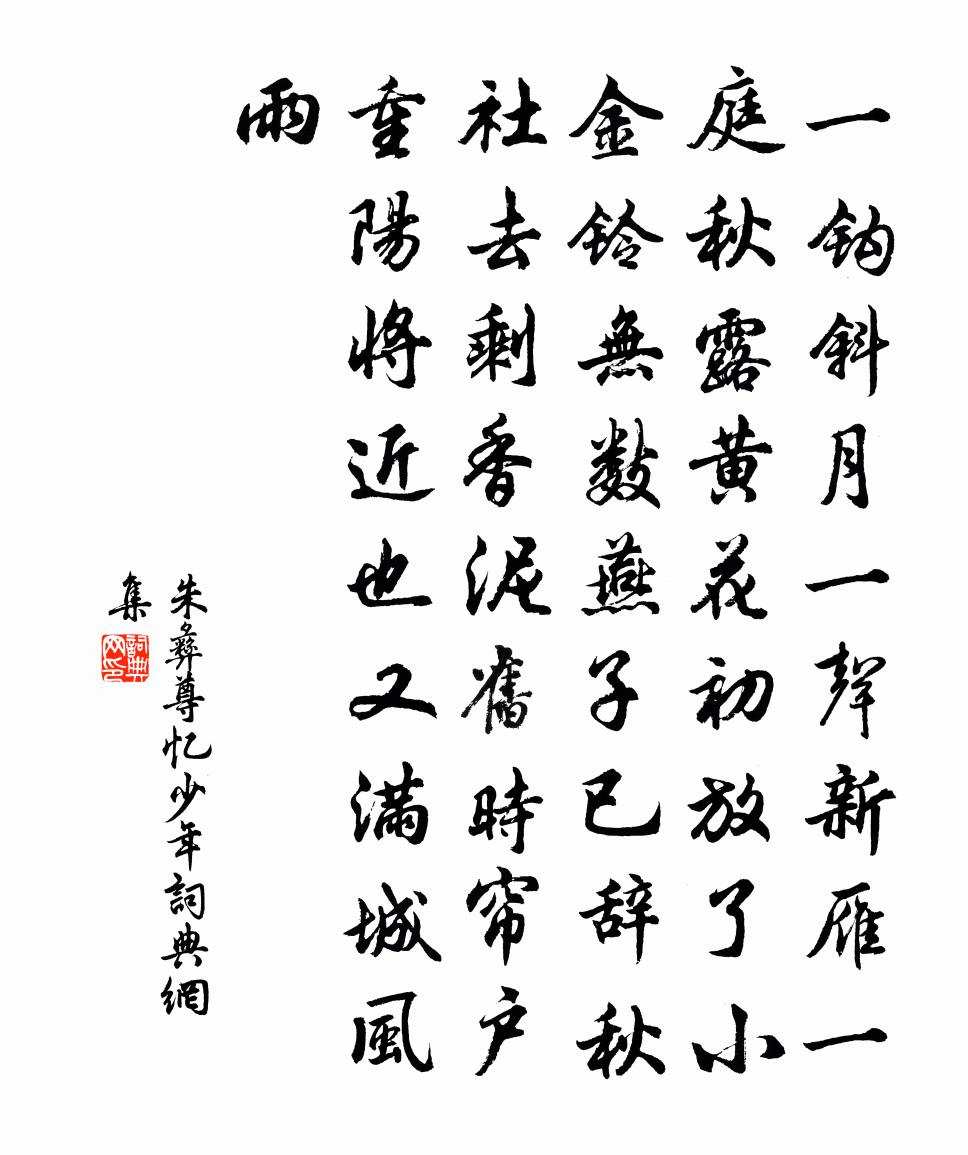 一鈎斜月一聲新雁一
庭秋露黄花初放了小
金鈴無數燕子已辞秋
社去剩香泥舊時帘户
重陽將近也又滿城風
雨
朱彝尊忆少年詞典網
集
詞典
网印